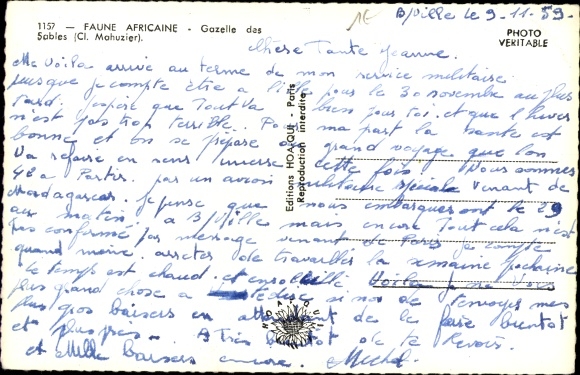 1157 — FAUNE AFRICAINE - Gazelle des
Sables (Cl. Mahuzier).
1E
B/Ville le 9-11-59.
PHOTO
VERITABLE
Chère Tante Jeanne.
Me voilà arrivé au terme de mon service militaire
puisque je compte être à Lille pour le 30 novembre au plus
tard. J'espère que tout va bien pour toi et que l'hiver
n'est pas trop terrible. Pour ma part la santé est
bonne et on se prépare au grand voyage que l'on
va refaire en sens inverse cette fois. Nous sommes
48 à partir par un avion militaire spécial venant de
Madagascar. Je pense que nous embarquerons le 29
au matin à B/Ville mais encore tout cela n'est
pas confirmé par message venant de Paris je compte
quand même arrêter de travailler la semaine prochaine
Le temps est chaud et ensoleillé. Voilà je ne vois
plus grand chose à si non de t'envoyer mes
plus gros baisers en attendant de le faire bientôt
et plus près. A très bientôt de te revoir.
et Mille baisers encore. Michel
Editions HOA-QUI - Paris
Reproduction interdite